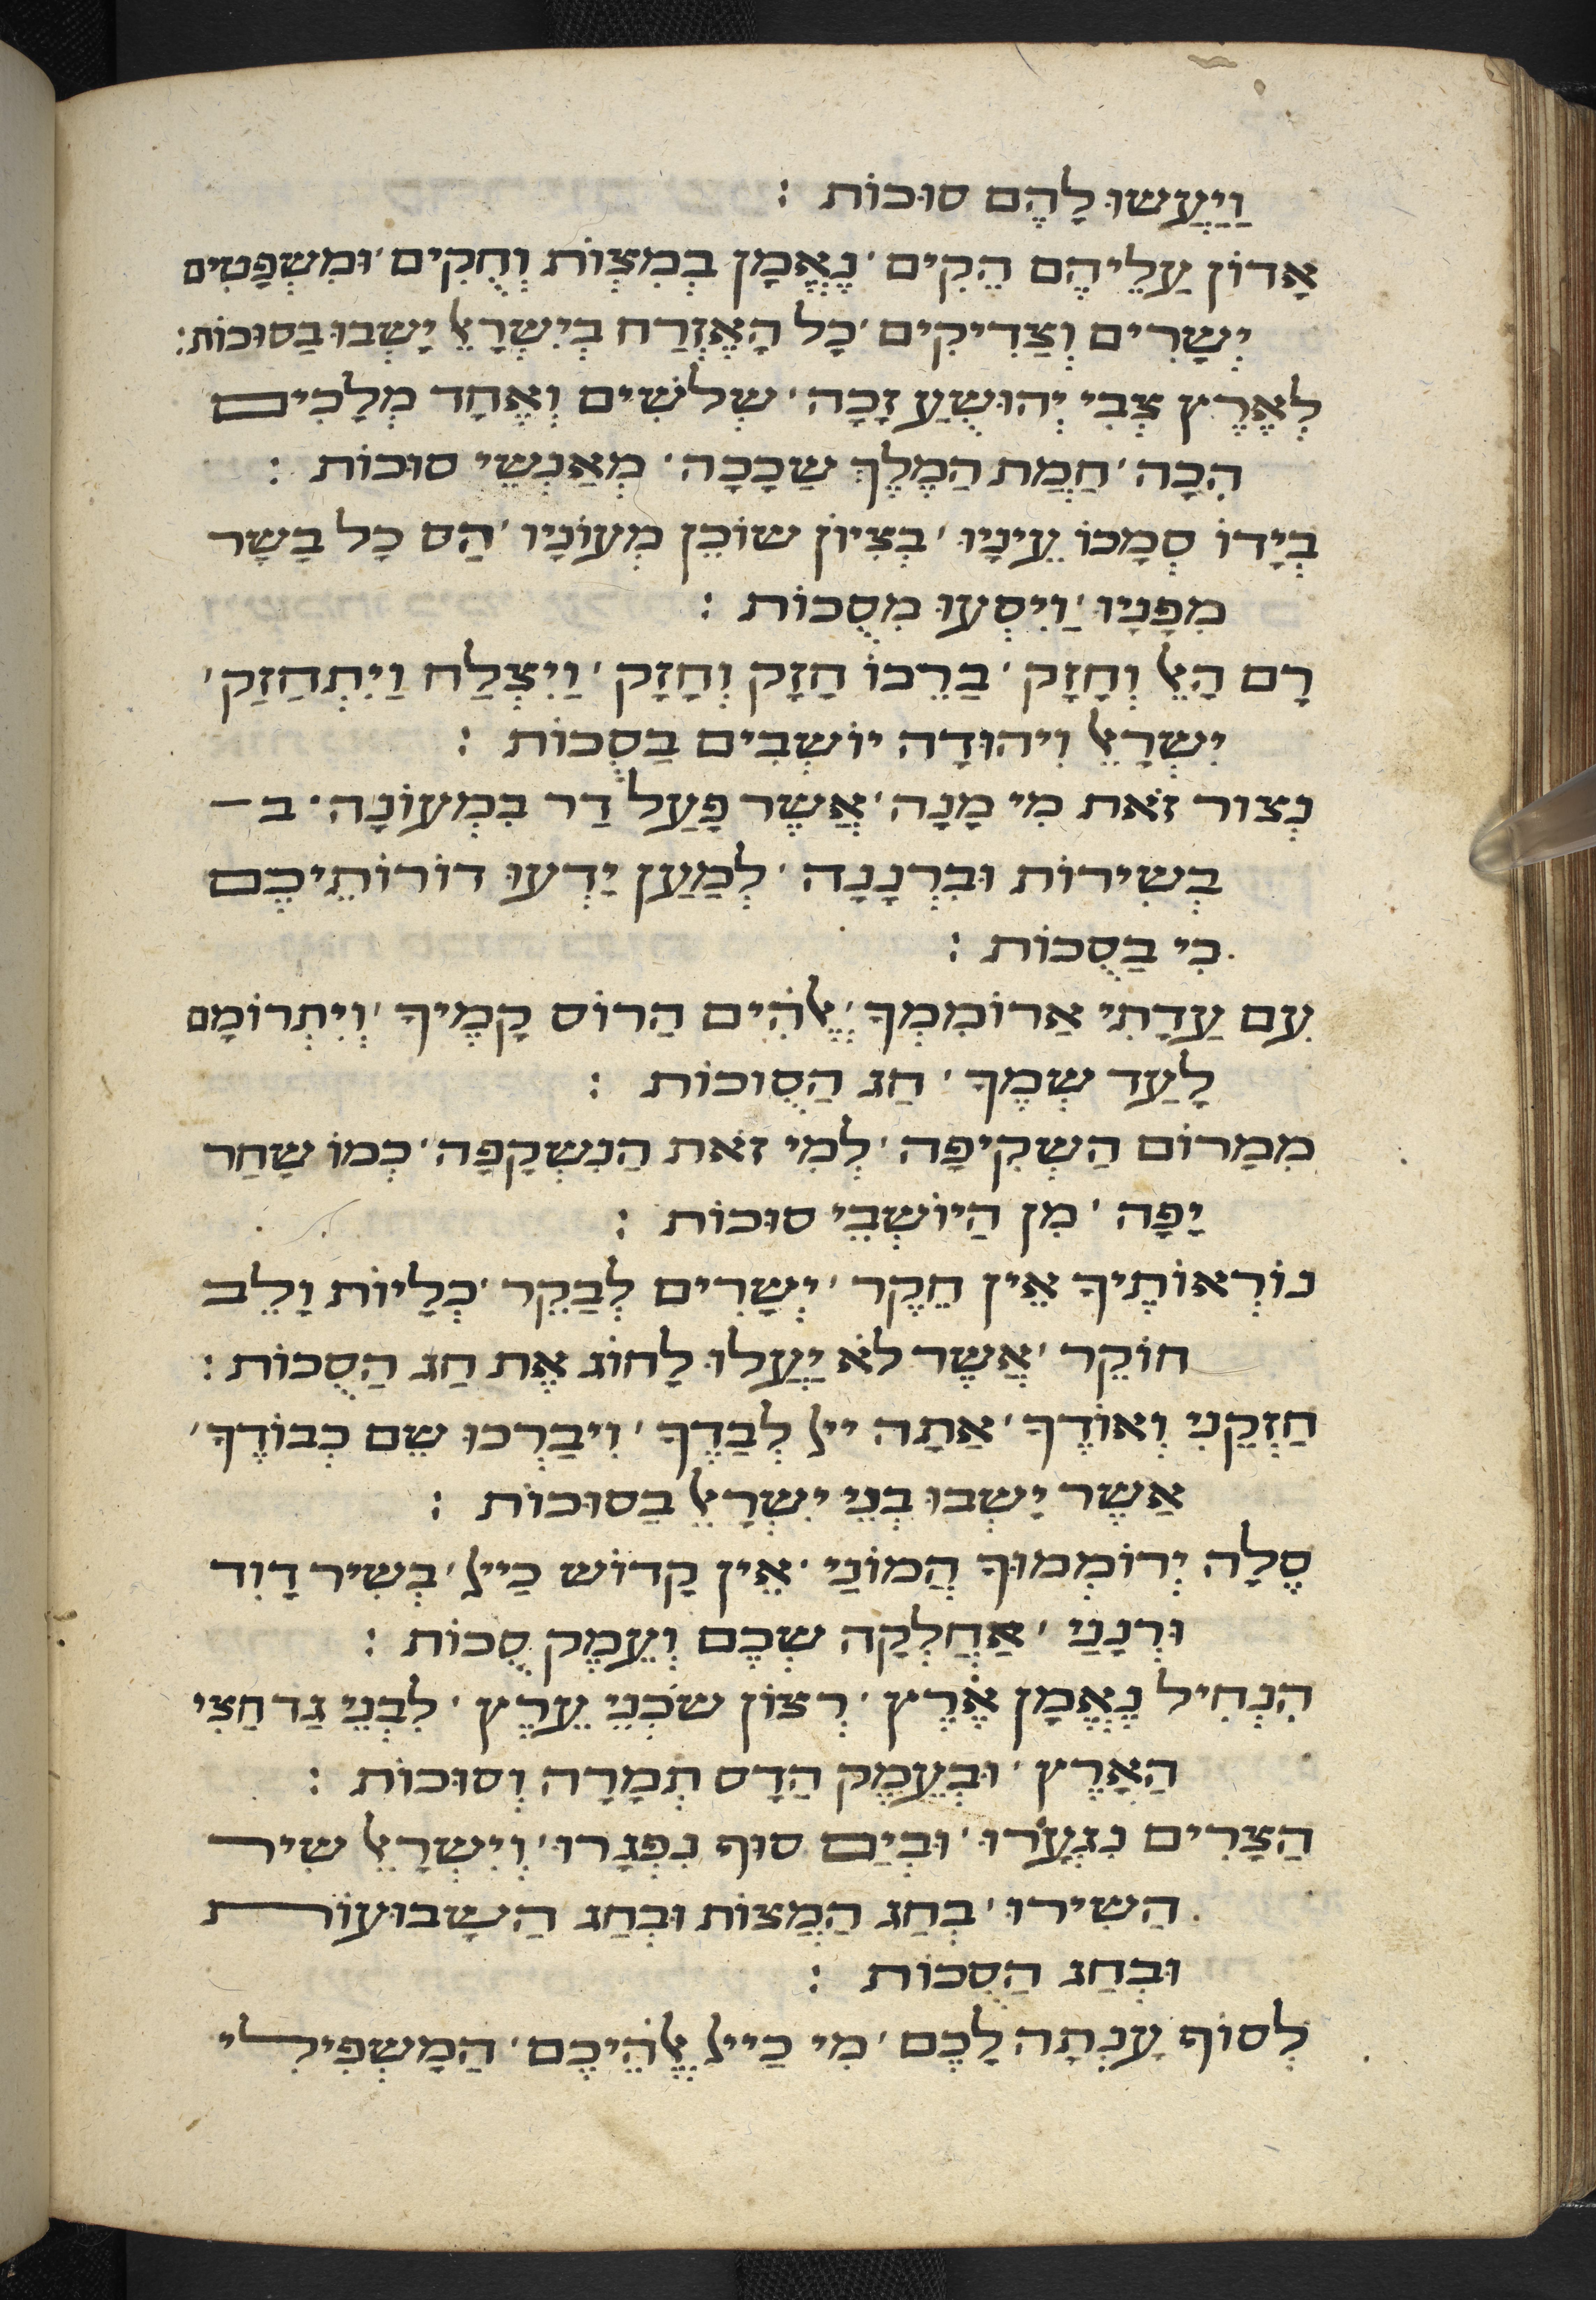 וַיַעֲשוּ לָהֶם סוּכוֹת :
אָדוֹן עֲלֵיהֶם הֵקִים ׳ נֶאֱמָן בְמִצְוֹת וְחֻקִים ׳ וּמִשְפָטִים
יְשָרִים וְצַדִיקִים ׳ כָל הָאֶזְרַח בְיִשְרָאֵל יָשְבוּ בַסוּכוֹת :
לְאֶרֶץ צְבִי יְהוּשֻעַ זָכָה ׳ שְלשִׁים וְאֶחָד מְלָכִים
הִכָה ׳ חֲמַת הַמֶלֶךְ שָכָכָה ׳ מְאַנְשֵי סוּכוֹת :
בְיָדוֹ סְמָכוֹ עֵינָיו ׳ בְצִיוֹן שוֹכֵן מְעוֹנָיו ׳ הַס כָל בָשָר
מִפָנָיו ׳ וַיִסְעוּ מִסֻכוֹת :
רָם הָאֵל וְחָזָק ׳ בַרֵכוֹ חָזָק וְחָזָק ׳ וַיִצְלַח וַיִתְחַזַק ׳
יִשְרָאֵל וִיהוּדָה יוֹשְבִים בַסְכוֹת :
נְצוֹר זֹאת מִי מָנָה ׳ אֲשֶר פָעַל דַר בִמְעוֹנָה ׳ ב־
בְשִירוֹת וּבִרְנָנָה ׳ לְמַעַן יֵדְעוּ דוֹרוֹתֵיכֶם
כִי בַסֻכוֹת :
עִם עֲדָתִי אֲרוֹמִמְךָ ׳ אֱלֹהִים הֲרוֹס קָמֶיךָ ׳ וְיִתְרוֹמָם
לָעַד שְמֶךָ ׳ חַג הַסֻוכוֹת :
מִמָרוֹם הַשְקִיפָה ׳ לְמִי זֹאת הַנִשְקָפָה ׳ כְמוֹ שָחַר
יָפָה ׳ מִן הַיוֹשְבֵי סוּכוֹת :
נוֹרְאוֹתֶיךָ אֵין חֵקֶר ׳ יְשָרִים לְבַקֵר ׳ כְלָיוֹת וָלֵב
חוֹקֵר ׳ אֲשֶר לֹא יַעֲלוּ לָחוֹג אֶת חַג הַסֻכוֹת :
חַזְקֵנִי וְאוֹדֶךָ ׳ אַתָה ייל לְבַדֶךָ ׳ וִיבַרְכוּ שֵם כְבוֹדֶךָ ׳
אַשֶר יָשְבוּ בְנֵי יִשְרָאֵל בַסוּכוֹת :
סֶלָה יְרוֹמְמוּךָ הֲמוֹנַי ׳ אֵין קָדוֹש כַייל ׳ בְשִיר דָוִד
וּרְנָנַי ׳ אַחֲלְקָה שְכֶם וְעֵמֶק סֻכוֹת :
הִנְחִיל נֶאֱמָן אֶרֶץ ׳ רְצוֹן שֹכְנֵי עֵרֶץ ׳ לִבְנֵי גַד חֲצִי
הָאָרֶץ ׳ וּבְעֵמֶק הַדָס תְמָרָה וְסוּכוֹת :
הַצָרִים נִנְעָרוּ ׳ וּבְיַם סוּף נִפְגָרוּ ׳ וְיִשְרָאֵל שִיר
הִשִירוּ ׳ בְחַג הַמַצוֹת וּבְחַג הַשָבוּעוֹת
וּבְחַג הַסֻכוֹת :
לְסוֹף עָנְתָה לָכֶם ׳ מִי כַייל אֱלֹהֵיכֶם ׳ הַמַשְפִילִי